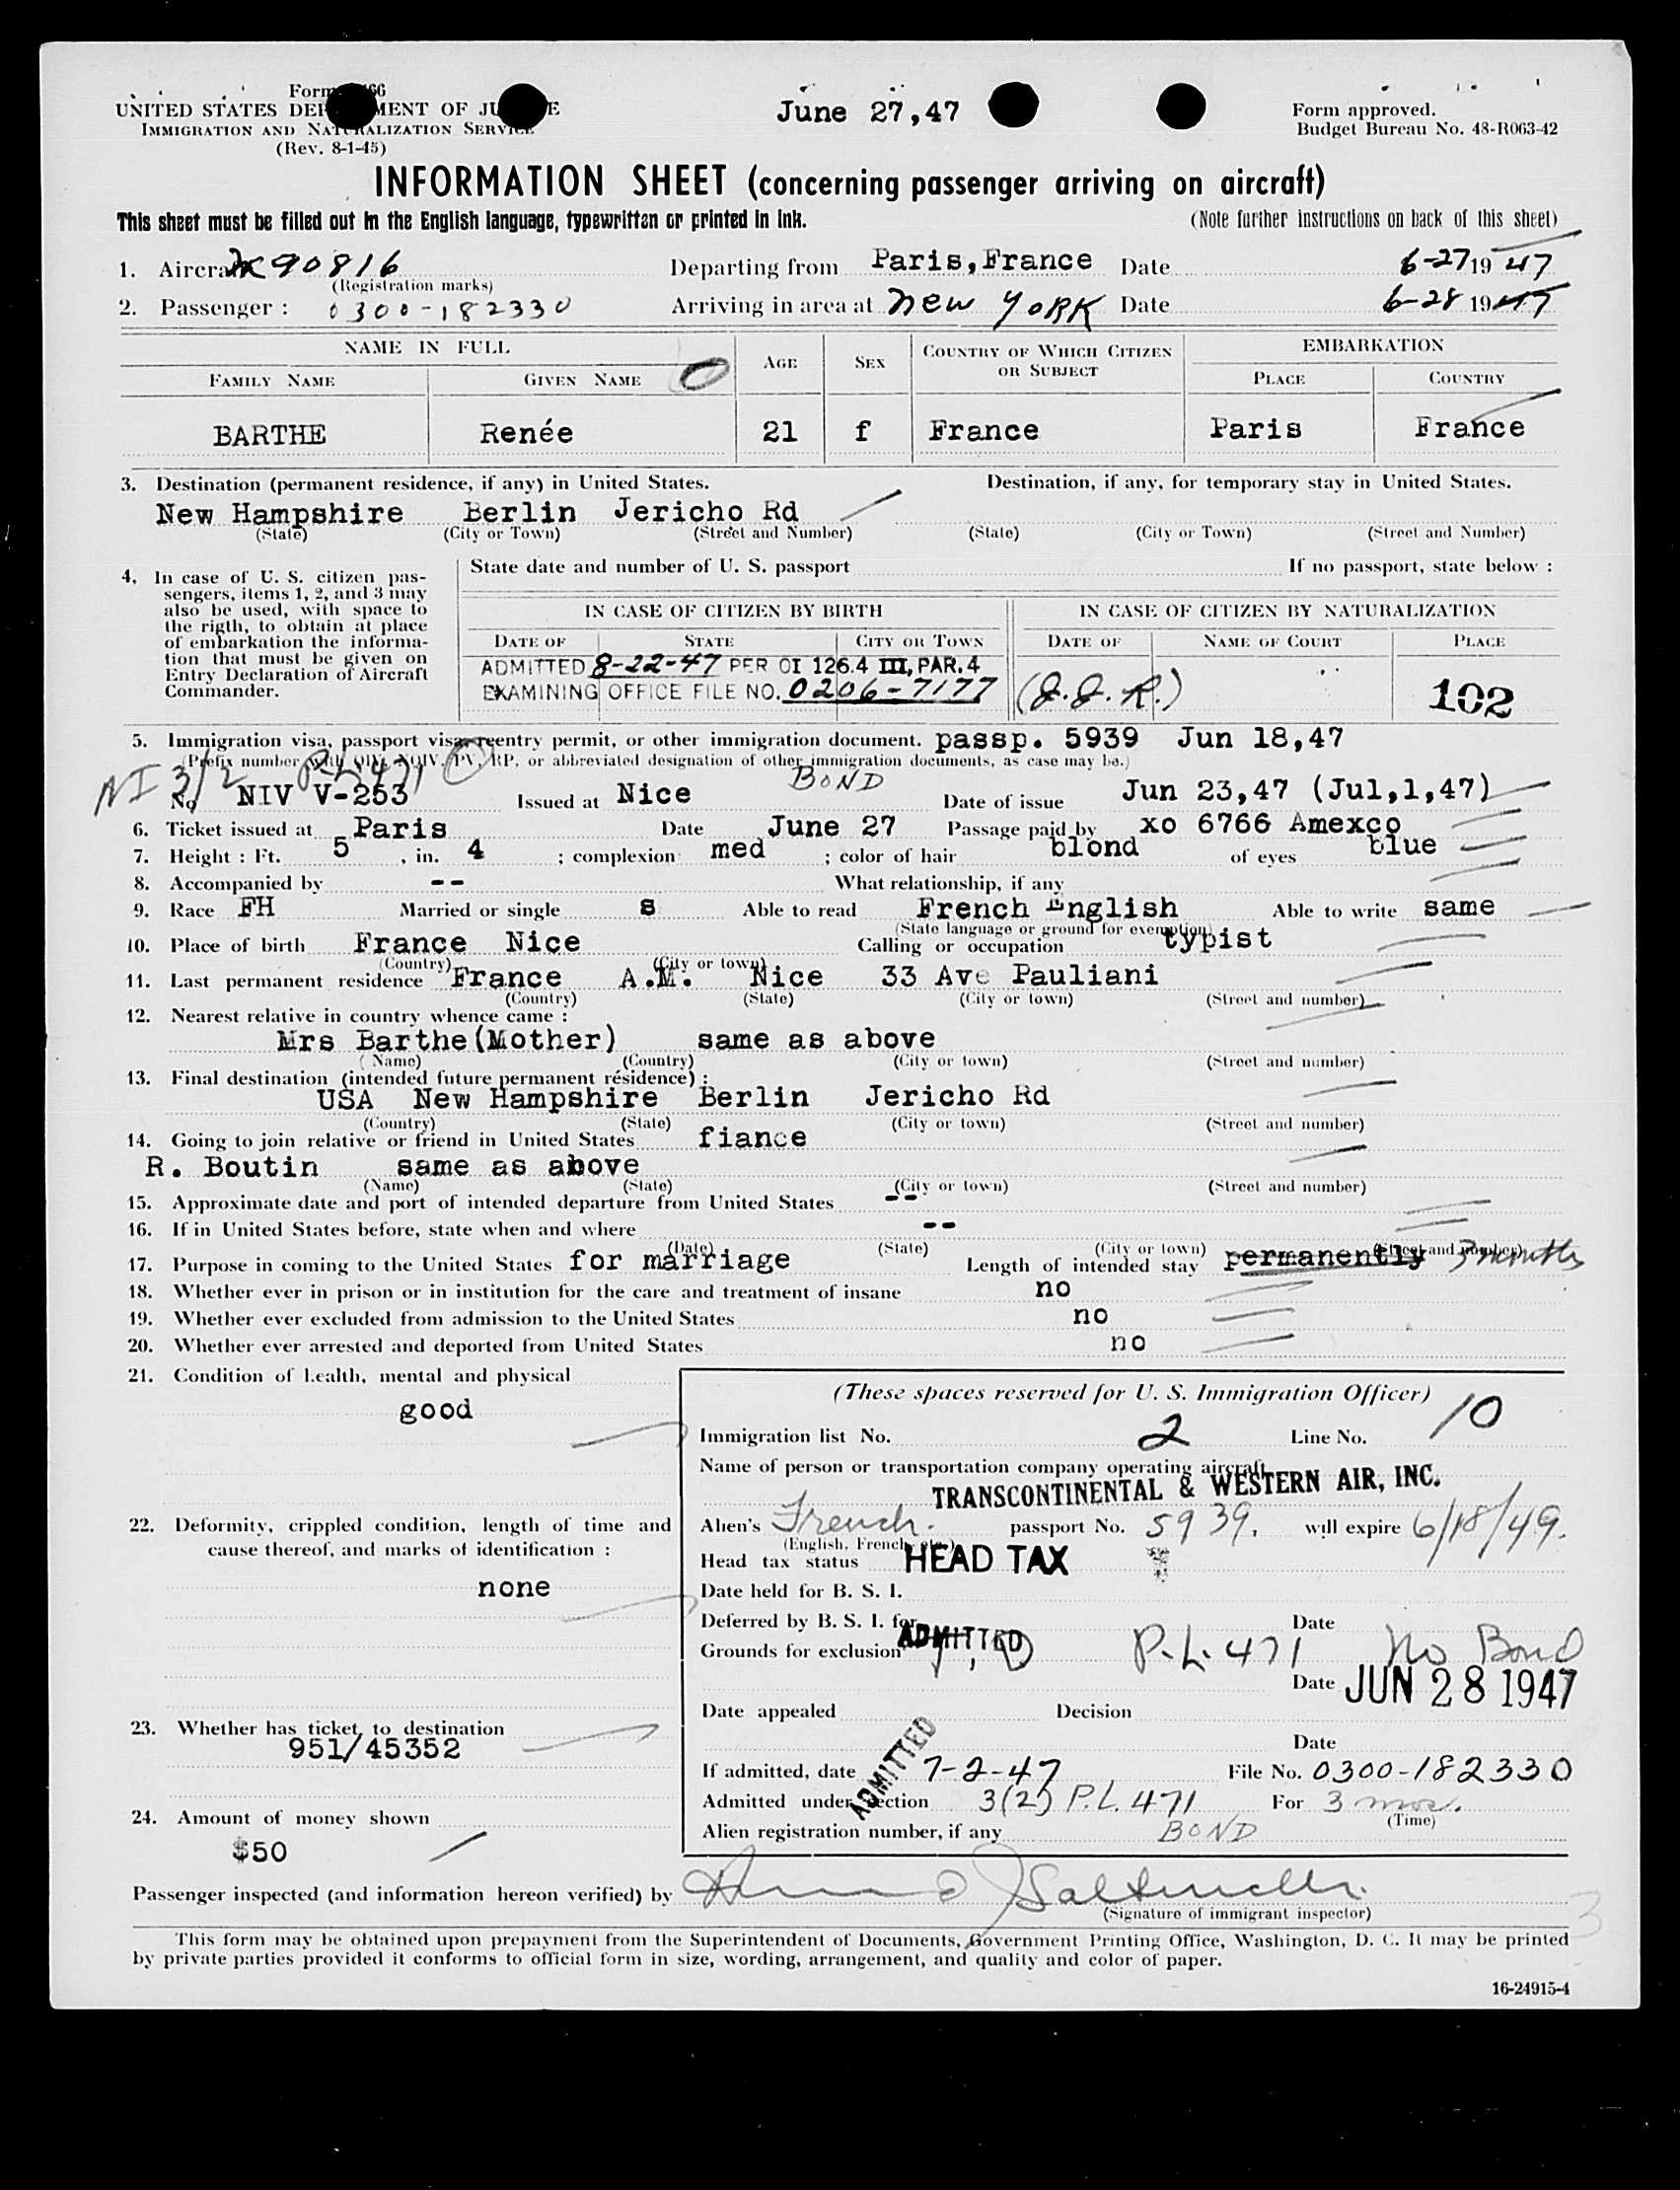 Form 466
June 27,47
Form approved.
UNITED STATES DEPARTMENT OF JUSTICE
Budget Bureau No. 48-R063-42
IMMIGRATION AND NATURALIZATION SERVICE
(Rev. 8-1-45)
INFORMATION SHEET (concerning passenger arriving on aircraft)
This sheet must be filled out in the English language, typewritten or printed in ink. (Note further instructions on back of this sheet)
1. Aircraft 90816 Departing from Paris,France Date 6-27 1947
(Registration marks)
2. Passenger : 0300-182330 Arriving in area at New YORK Date 6-28 1947
NAME IN FULL AGE SEX COUNTRY OF WHICH CITIZEN OR SUBJECT EMBARKATION
FAMILY NAME GIVEN NAME PLACE COUNTRY
BARTHE Renée 21 f France Paris France
3. Destination (permanent residence, if any) in United States. Destination, if any, for temporary stay in United States.
New Hampshire Berlin Jericho Rd
(State) (City or Town) (Street and Number) (State) (City or Town) (Street and Number)
4. In case of U. S. citizen pas-
sengers, items 1, 2, and 3 may
also be used, with space to
the rigth, to obtain at place
of embarkation the informa-
tion that must be given on
Entry Declaration of Aircraft
Commander.
State date and number of U. S. passport If no passport, state below :
IN CASE OF CITIZEN BY BIRTH IN CASE OF CITIZEN BY NATURALIZATION
DATE OF STATE CITY OR TOWN DATE OF NAME OF COURT PLACE
ADMITTED 8-22-47 PER OI 126.4 III, PAR. 4
EXAMINING OFFICE FILE NO. 0206-7177 (J.J.R.) 102
5. Immigration visa, passport visa, reentry permit, or other immigration document. passp. 5939 Jun 18,47
(Prefix number with QIV, NQIV, PV, RP, or abbreviated designation of other immigration documents, as case may be.)
NI 3/2 BOND
No NIV V-253 Issued at Nice Date of issue Jun 23,47 (Jul,1,47)
6. Ticket issued at Paris Date June 27 Passage paid by xo 6766 Amexco
7. Height : Ft. 5 , in. 4 ; complexion med ; color of hair blond of eyes blue
8. Accompanied by -- What relationship, if any
9. Race FH Married or single s Able to read French English Able to write same
(State language or ground for exemption)
10. Place of birth France Nice Calling or occupation typist
(Country) (City or town)
11. Last permanent residence France A.M. Nice 33 Ave Pauliani
(Country) (State) (City or town) (Street and number)
12. Nearest relative in country whence came :
Mrs Barthe(Mother) same as above
(Name) (Country) (City or town) (Street and number)
13. Final destination (intended future permanent résidence) :
USA New Hampshire Berlin Jericho Rd
(Country) (State) (City or town) (Street and number)
14. Going to join relative or friend in United States fiance
R. Boutin same as above
(Name) (State) (City or town) (Street and number)
15. Approximate date and port of intended departure from United States --
16. If in United States before, state when and where --
(Date) (State) (City or town) (Street and number)
17. Purpose in coming to the United States for marriage Length of intended stay permanently 3 months
18. Whether ever in prison or in institution for the care and treatment of insane no
19. Whether ever excluded from admission to the United States no
20. Whether ever arrested and deported from United States no
21. Condition of health, mental and physical
good
22. Deformity, crippled condition, length of time and
cause thereof, and marks of identification :
none
23. Whether has ticket to destination
951/45352
24. Amount of money shown
$50
(These spaces reserved for U. S. Immigration Officer)
Immigration list No. 2 Line No. 10
Name of person or transportation company operating aircraft
TRANSCONTINENTAL & WESTERN AIR, INC.
Alien's French. passport No. 5939. will expire 6/18/49.
(English, French, etc.)
Head tax status HEAD TAX
Date held for B. S. I.
Deferred by B. S. I. for Date
Grounds for exclusion ADMITTED P.L. 471 No Bond
Date JUN 28 1947
Date appealed Decision
Date
If admitted, date ADMITTED 7-2-47 File No. 0300-182330
Admitted under section 3(2) P.L. 471 For 3 mos.
(Time)
Alien registration number, if any BOND
Passenger inspected (and information hereon verified) by
(Signature of immigrant inspector)
This form may be obtained upon prepayment from the Superintendent of Documents, Government Printing Office, Washington, D. C. It may be printed
by private parties provided it conforms to official form in size, wording, arrangement, and quality and color of paper.
16-24915-4